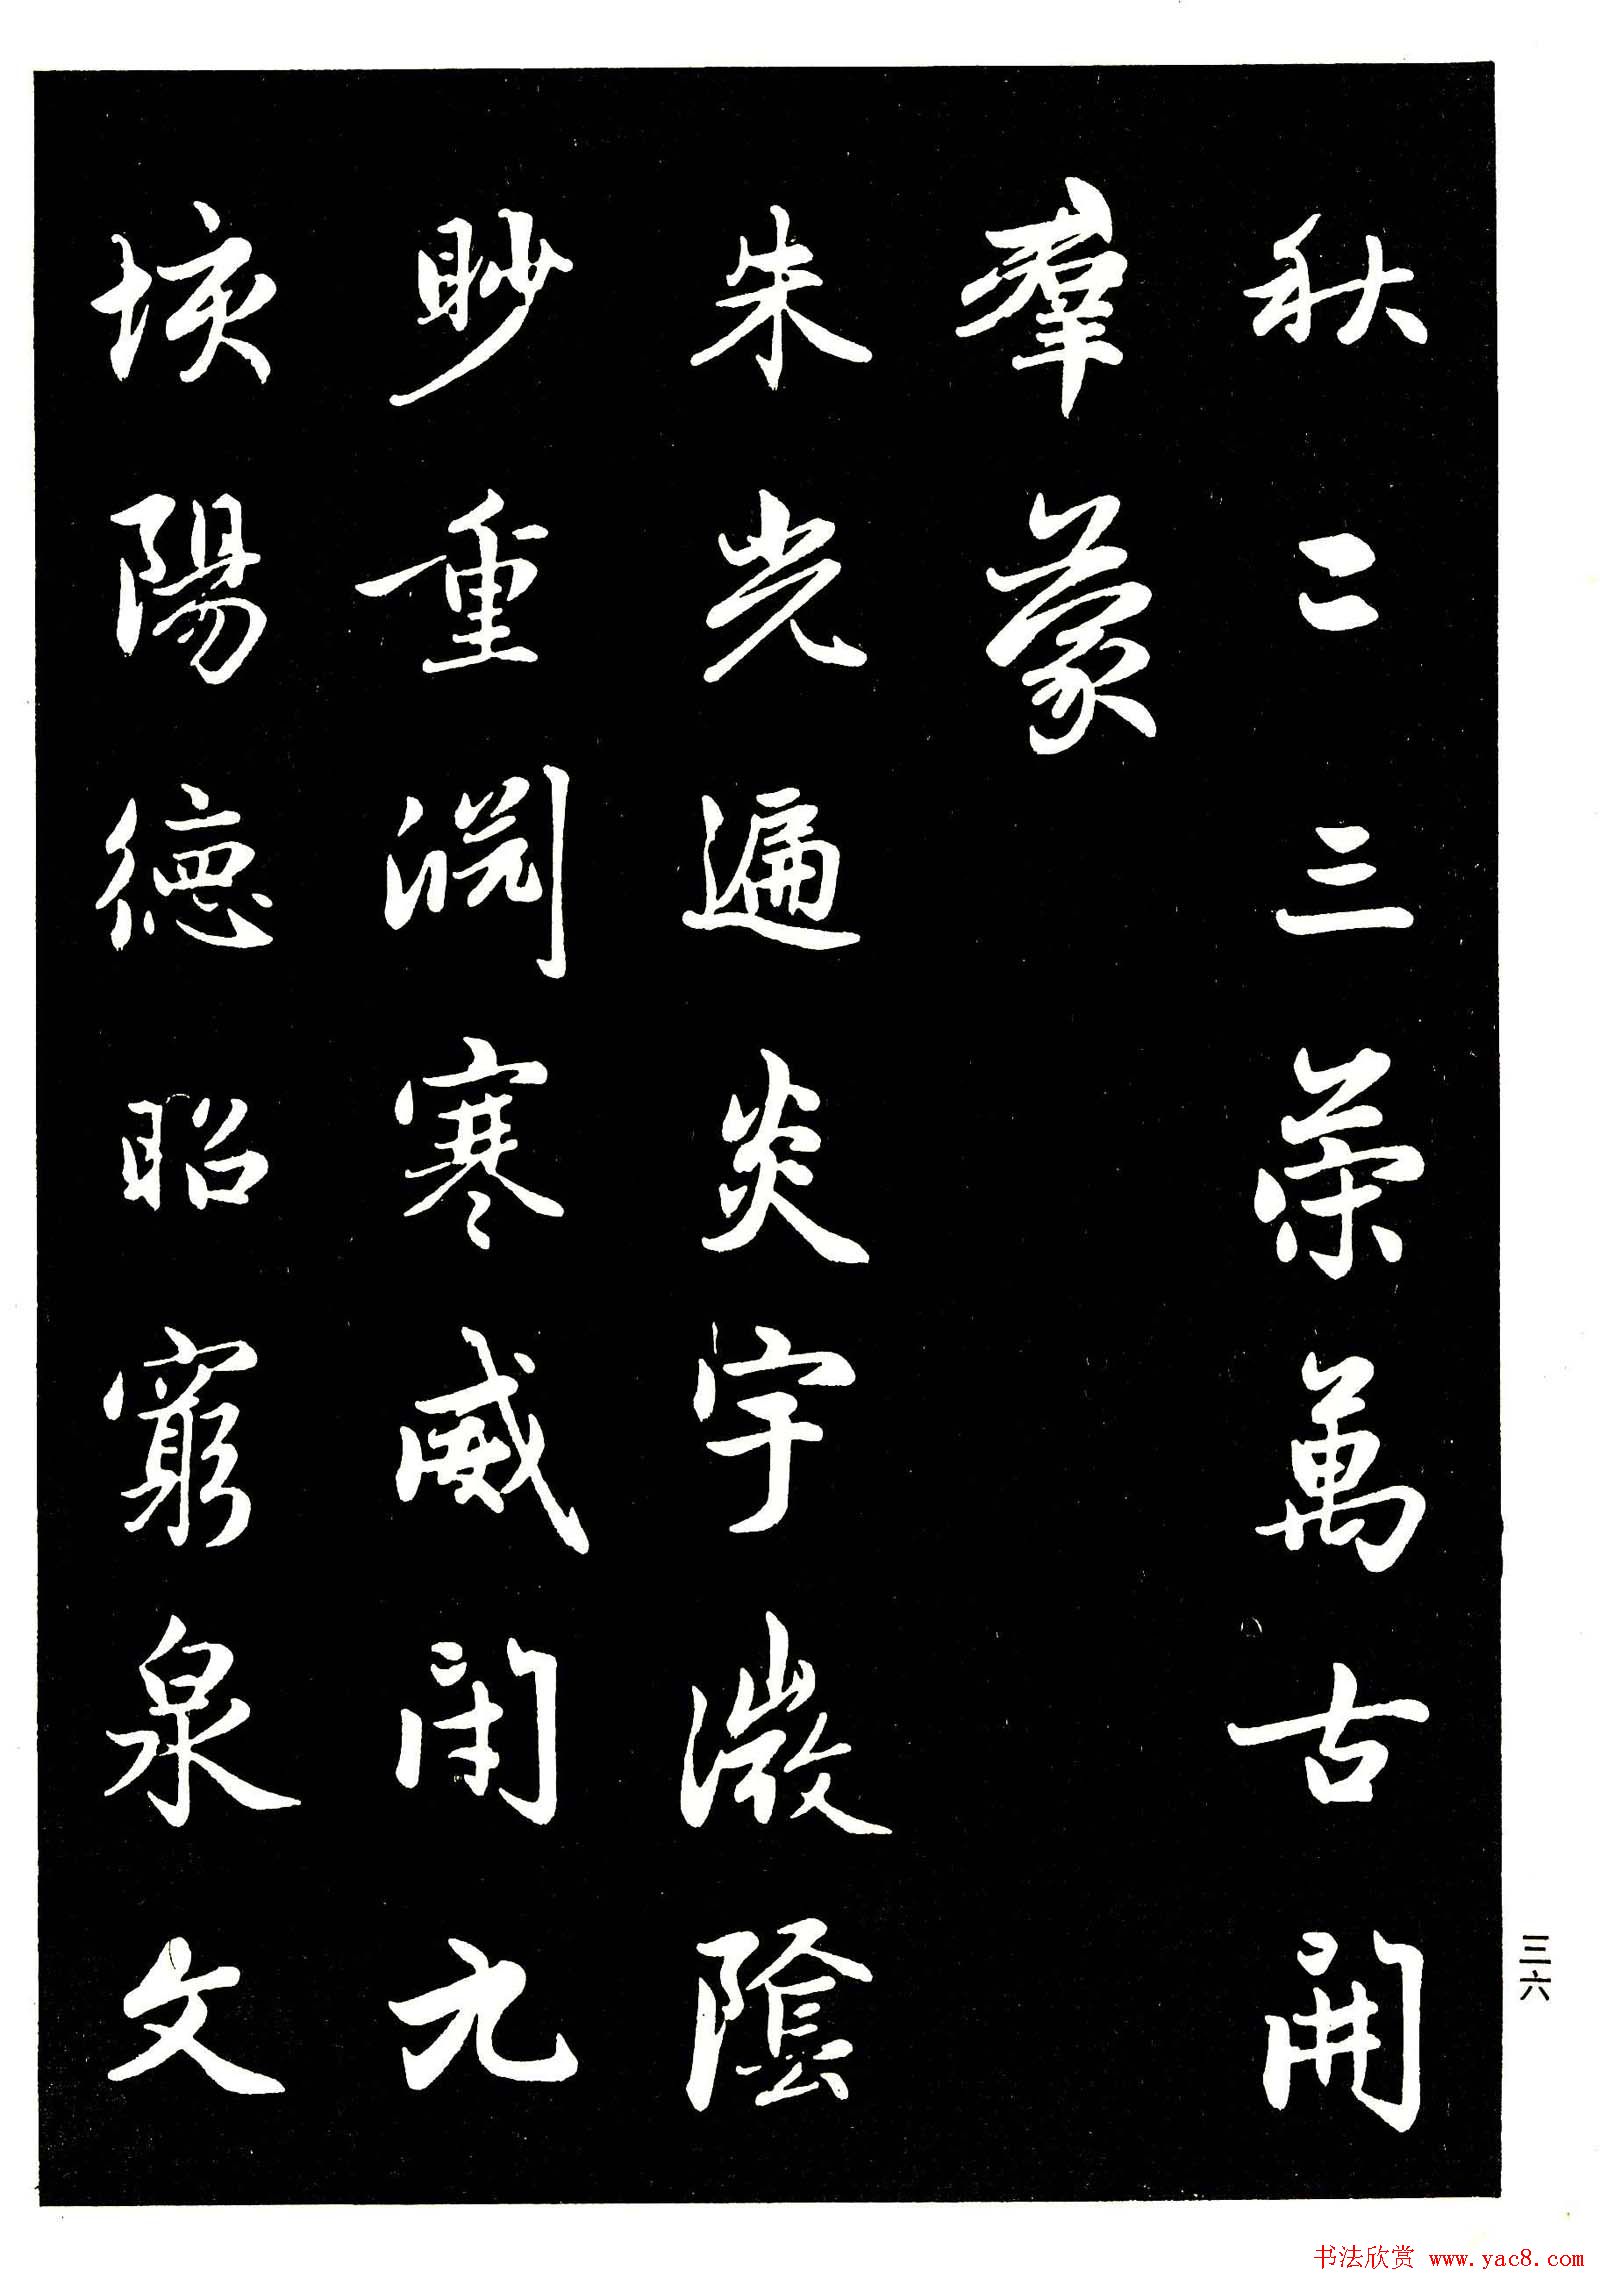 秋二三策萬古開
羣蒙
朱光遍炎宇微陰
眇重淵寒威閉九
垓陽德昭窮泉文
三六
书法欣赏 www.yac8.com